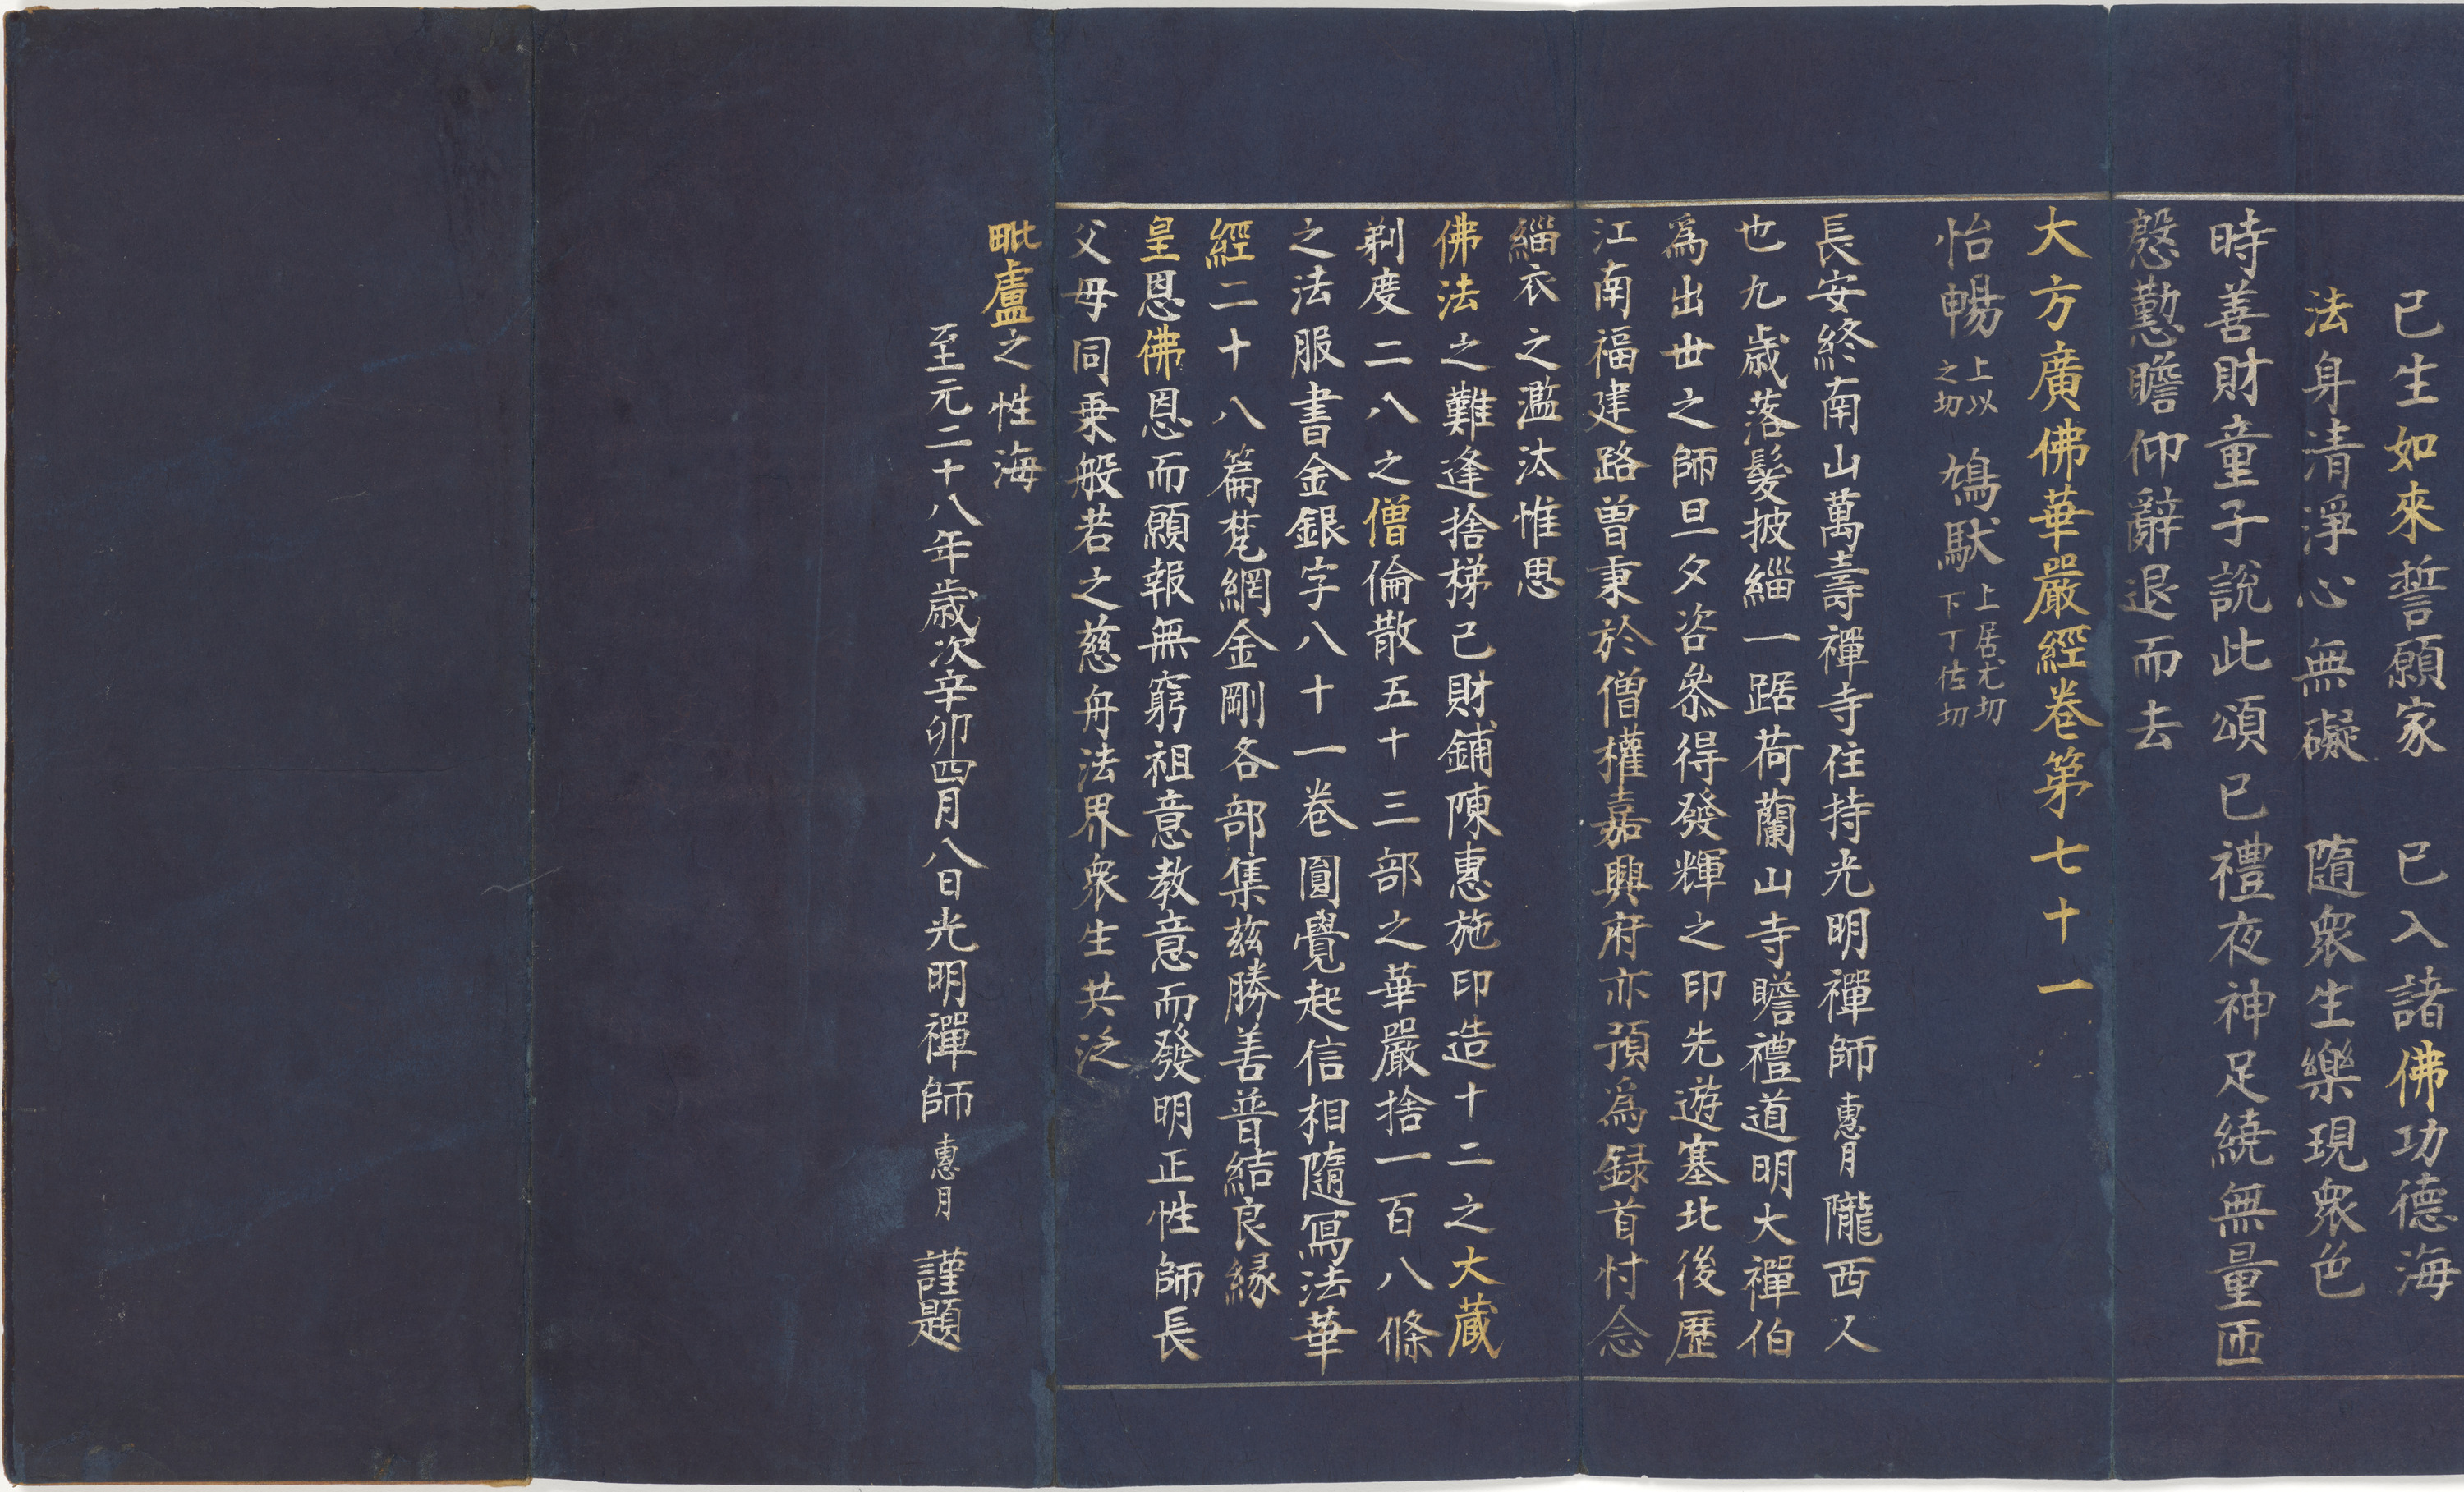 已生如來誓願家　已入諸佛功德海
法身清淨心無礙　隨衆生樂現衆色
時善財童子說此頌已禮夜神足繞無量匝
慇懃瞻仰辭退而去
大方廣佛華嚴經卷第七十一
怡暢上以之切　鳩馱上居尤切下丁佐切
長安終南山萬壽禪寺住持光明禪師惠月隴西人
也九歲落髮披緇一踞荷蘭山寺瞻禮道明大禪伯
爲出世之師旦夕咨叅得發輝之印先遊塞北後歷
江南福建路曾秉於僧權嘉興府亦預爲録首忖念
緇衣之濫汰惟思
佛法之難逢捨梯己財鋪陳惠施印造十二之大藏
剃度二八之僧倫散五十三部之華嚴捨一百八條
之法服書金銀字八十一卷圓覺起信相隨寫法華
經二十八篇梵網金剛各部集兹勝善普結良縁
皇恩佛恩而願報無窮祖意教意而發明正性師長
父母同乗般若之慈舟法界衆生共泛
毗盧之性海
至元二十八年歲次辛卯四月八日光明禪師惠月　謹題